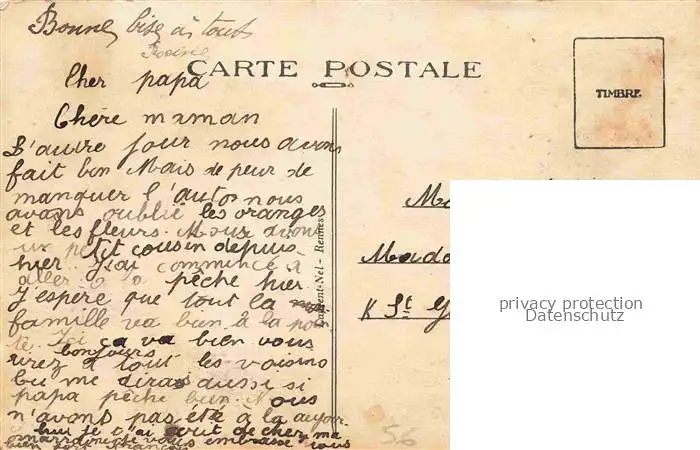 Bonne bise à tous
CARTE POSTALE
TIMBRE
Cher papa
Chère maman
L'autre jour nous avons
fait bon Mais de peur de
manquer l'autos nous
avons oublié les oranges
et les fleurs. Nous avons
un petit cousin depuis
hier. J'ai commencé à
aller à la pêche hier.
J'espère que tout la
famille va bien à la poin
te. Ici ça va bien vous
bonjours
direz à tout les voisins
tu me diras aussi si
papa pêche bien. Nous
n'avons pas été à la
hui je t'ai écrit de chez ma
marraine vous embrasse tous
bien fort François
Laurent-Nel - Rennes
Ma
Mada
K St
56
privacy protection
Datenschutz